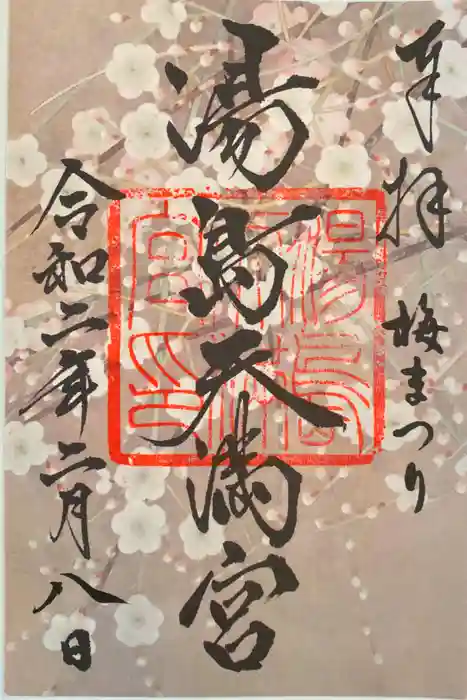 奉拝 梅まつり
湯島天満宮
令和二年二月八日